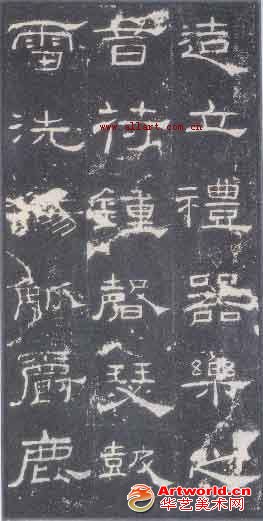 造立禮器樂之
音苻鍾磬瑟鼓
雷洗觴觚爵鹿
www.allart.com.cn
Artworld.cn
华艺美术网